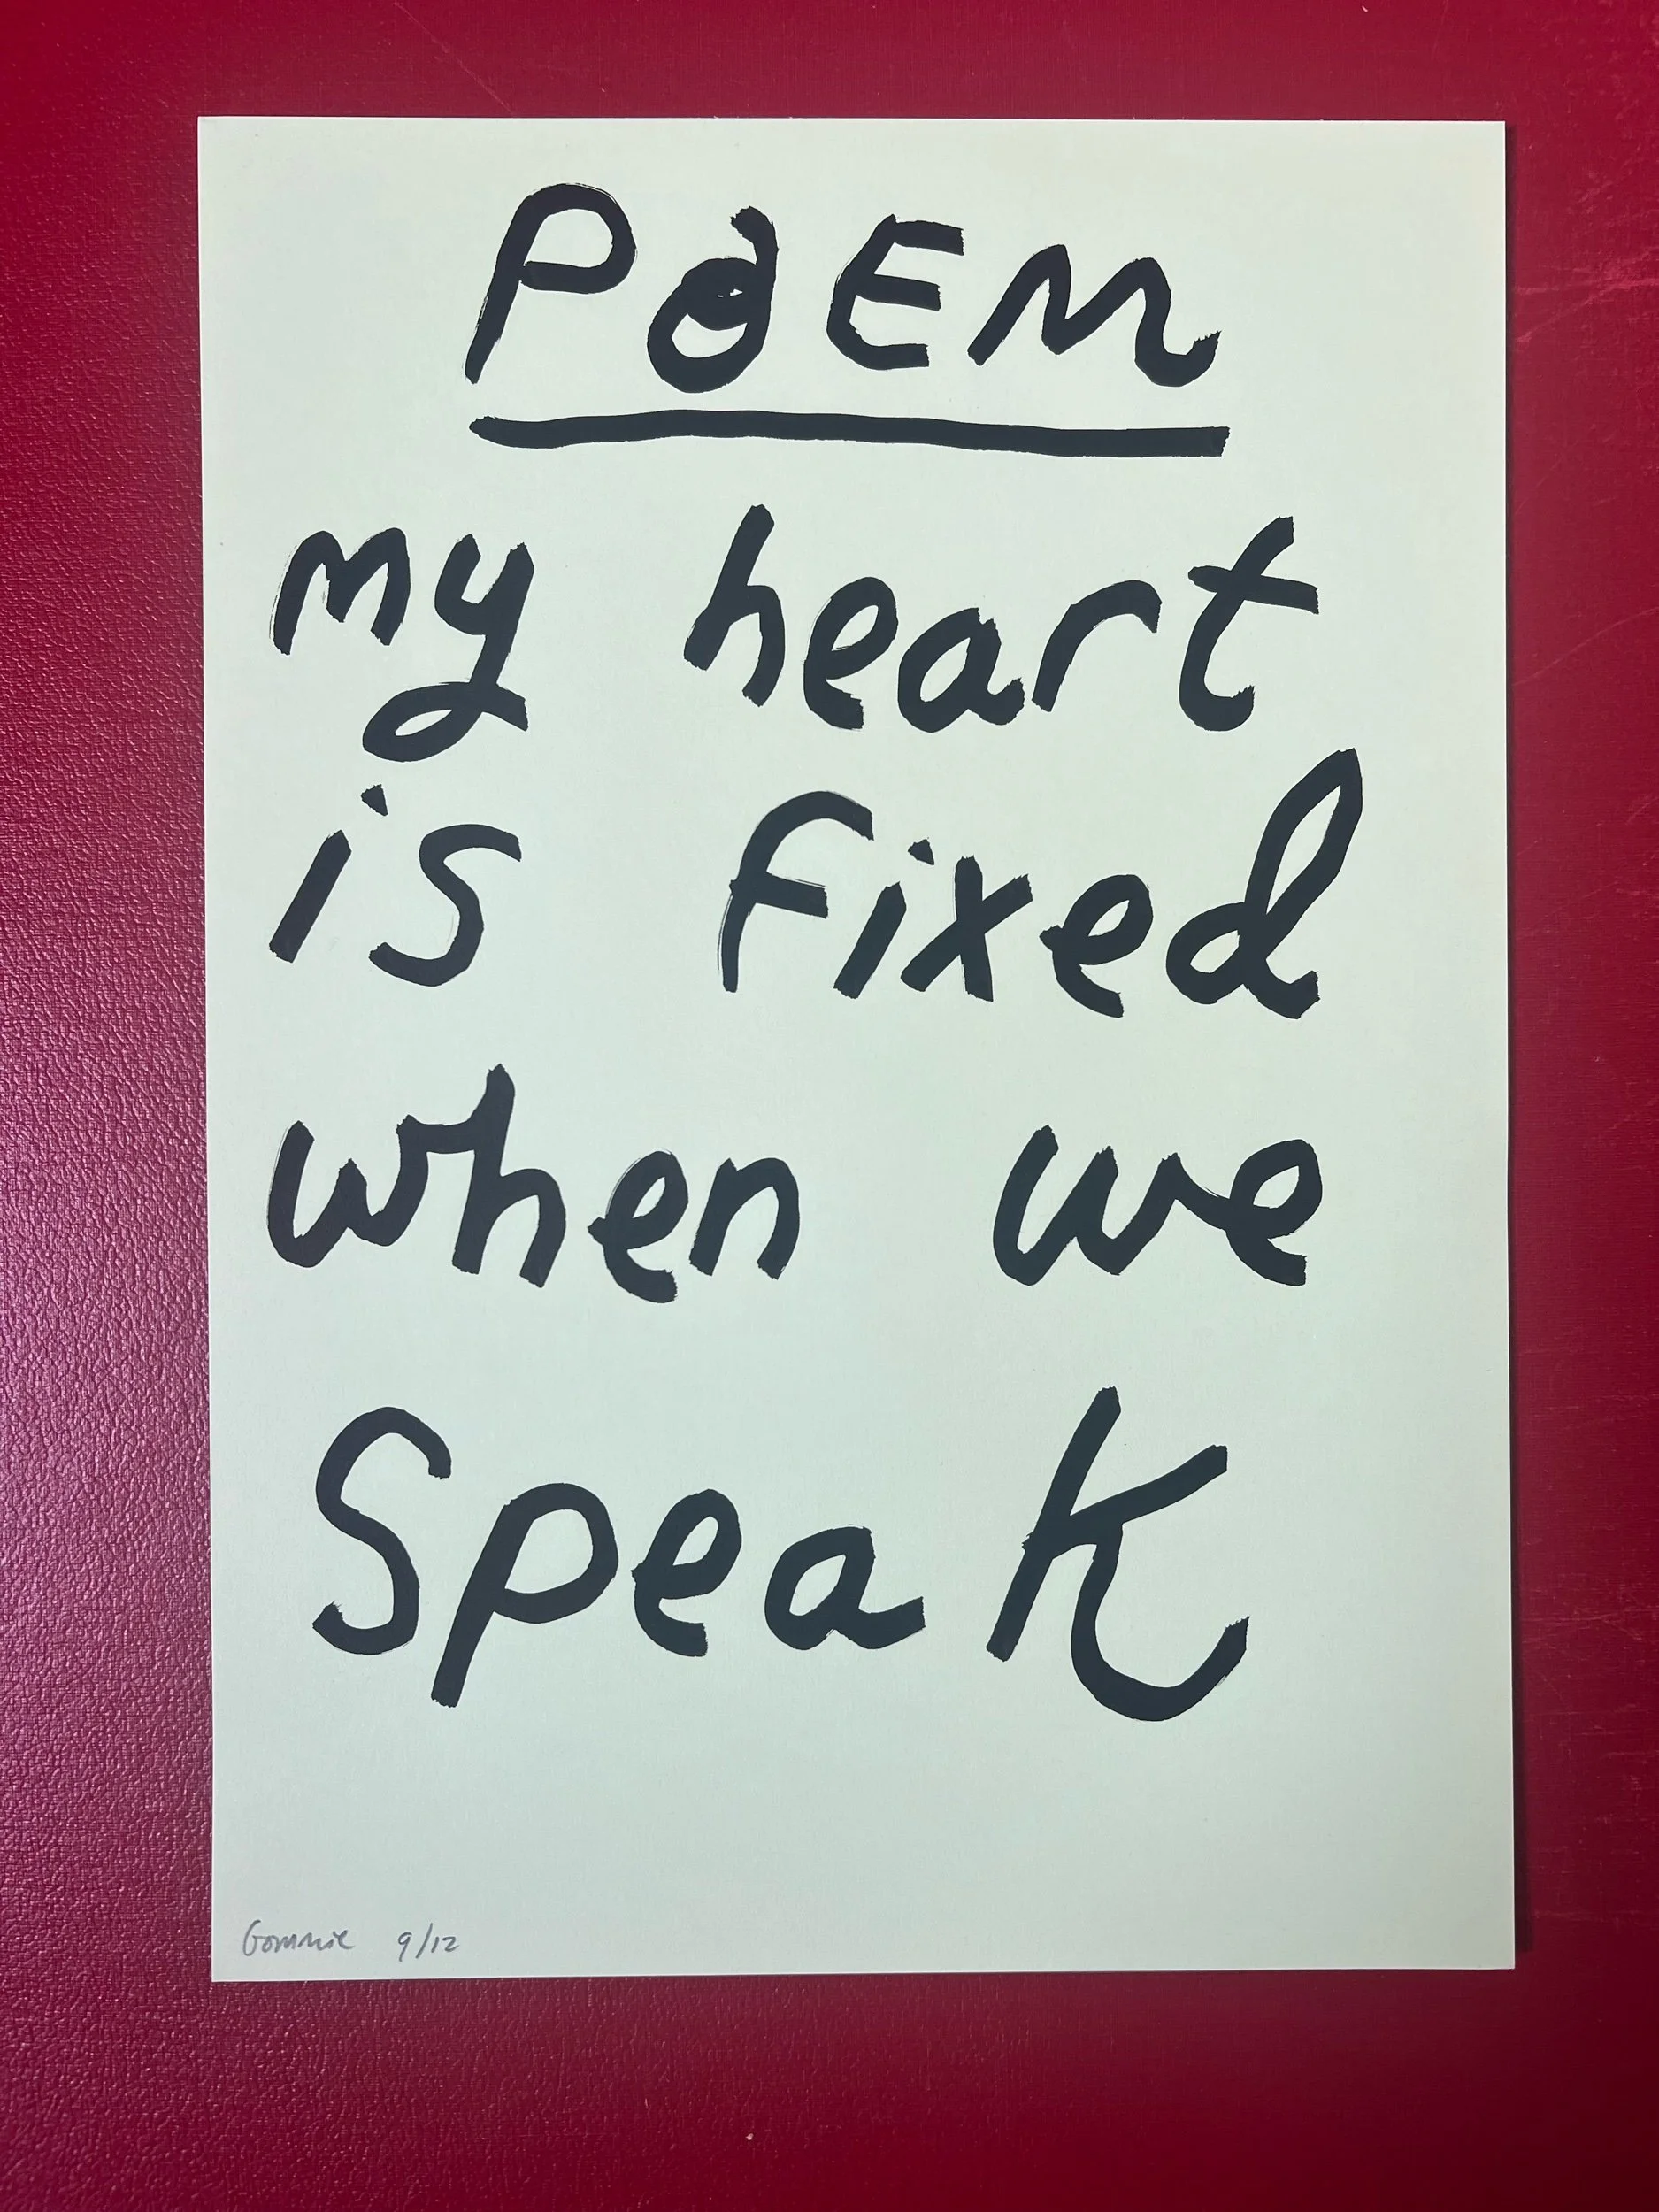 POEM
my heart
is fixed
when we
Speak
Gommie 9/12